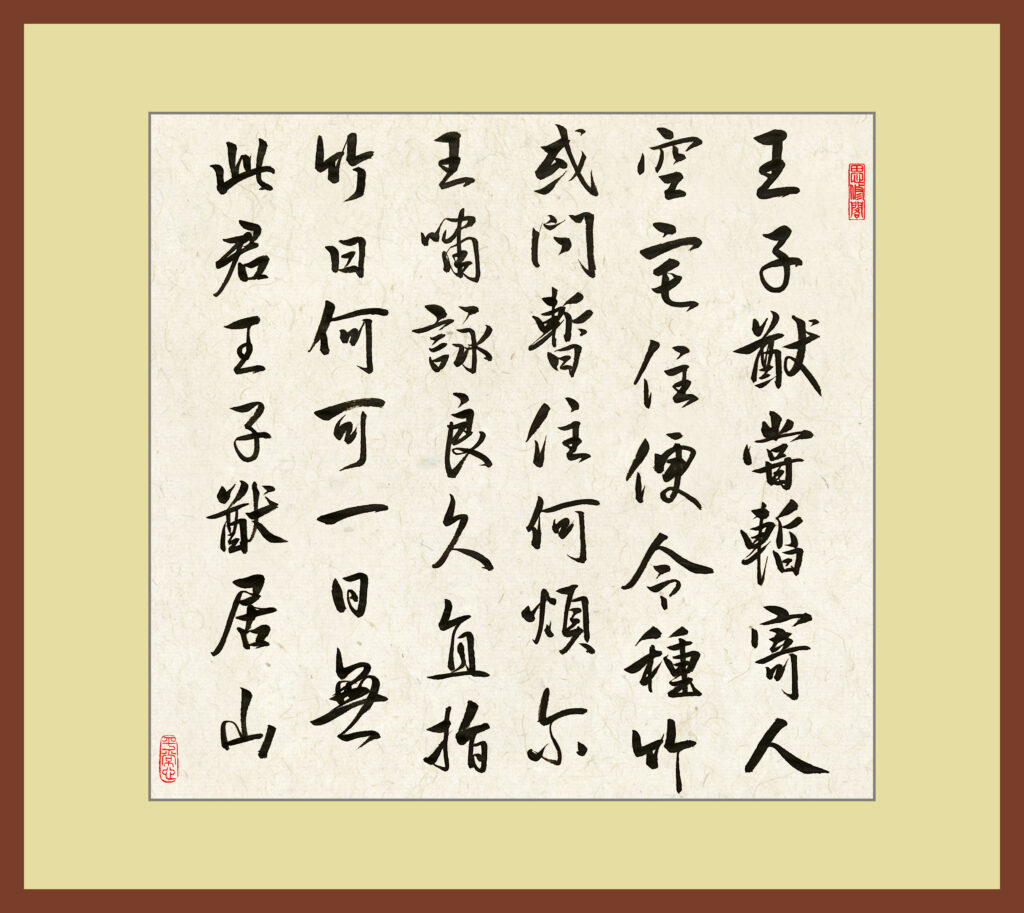 王子猷嘗暫寄人
空宅住便令種竹
或問暫住何煩尔
王嘯詠良久直指
竹曰何可一日無
此君王子猷居山
思修閣
平常心